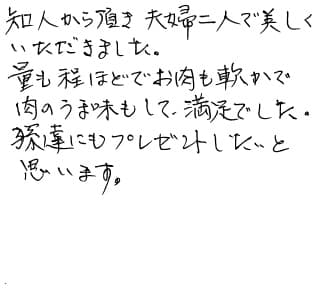 知人から頂き 夫婦二人で美しく
いただきました。
量も程ほどでお肉も軟かで
肉のうま味もして、満足でした。
孫達にもプレゼントしたいと
思います。